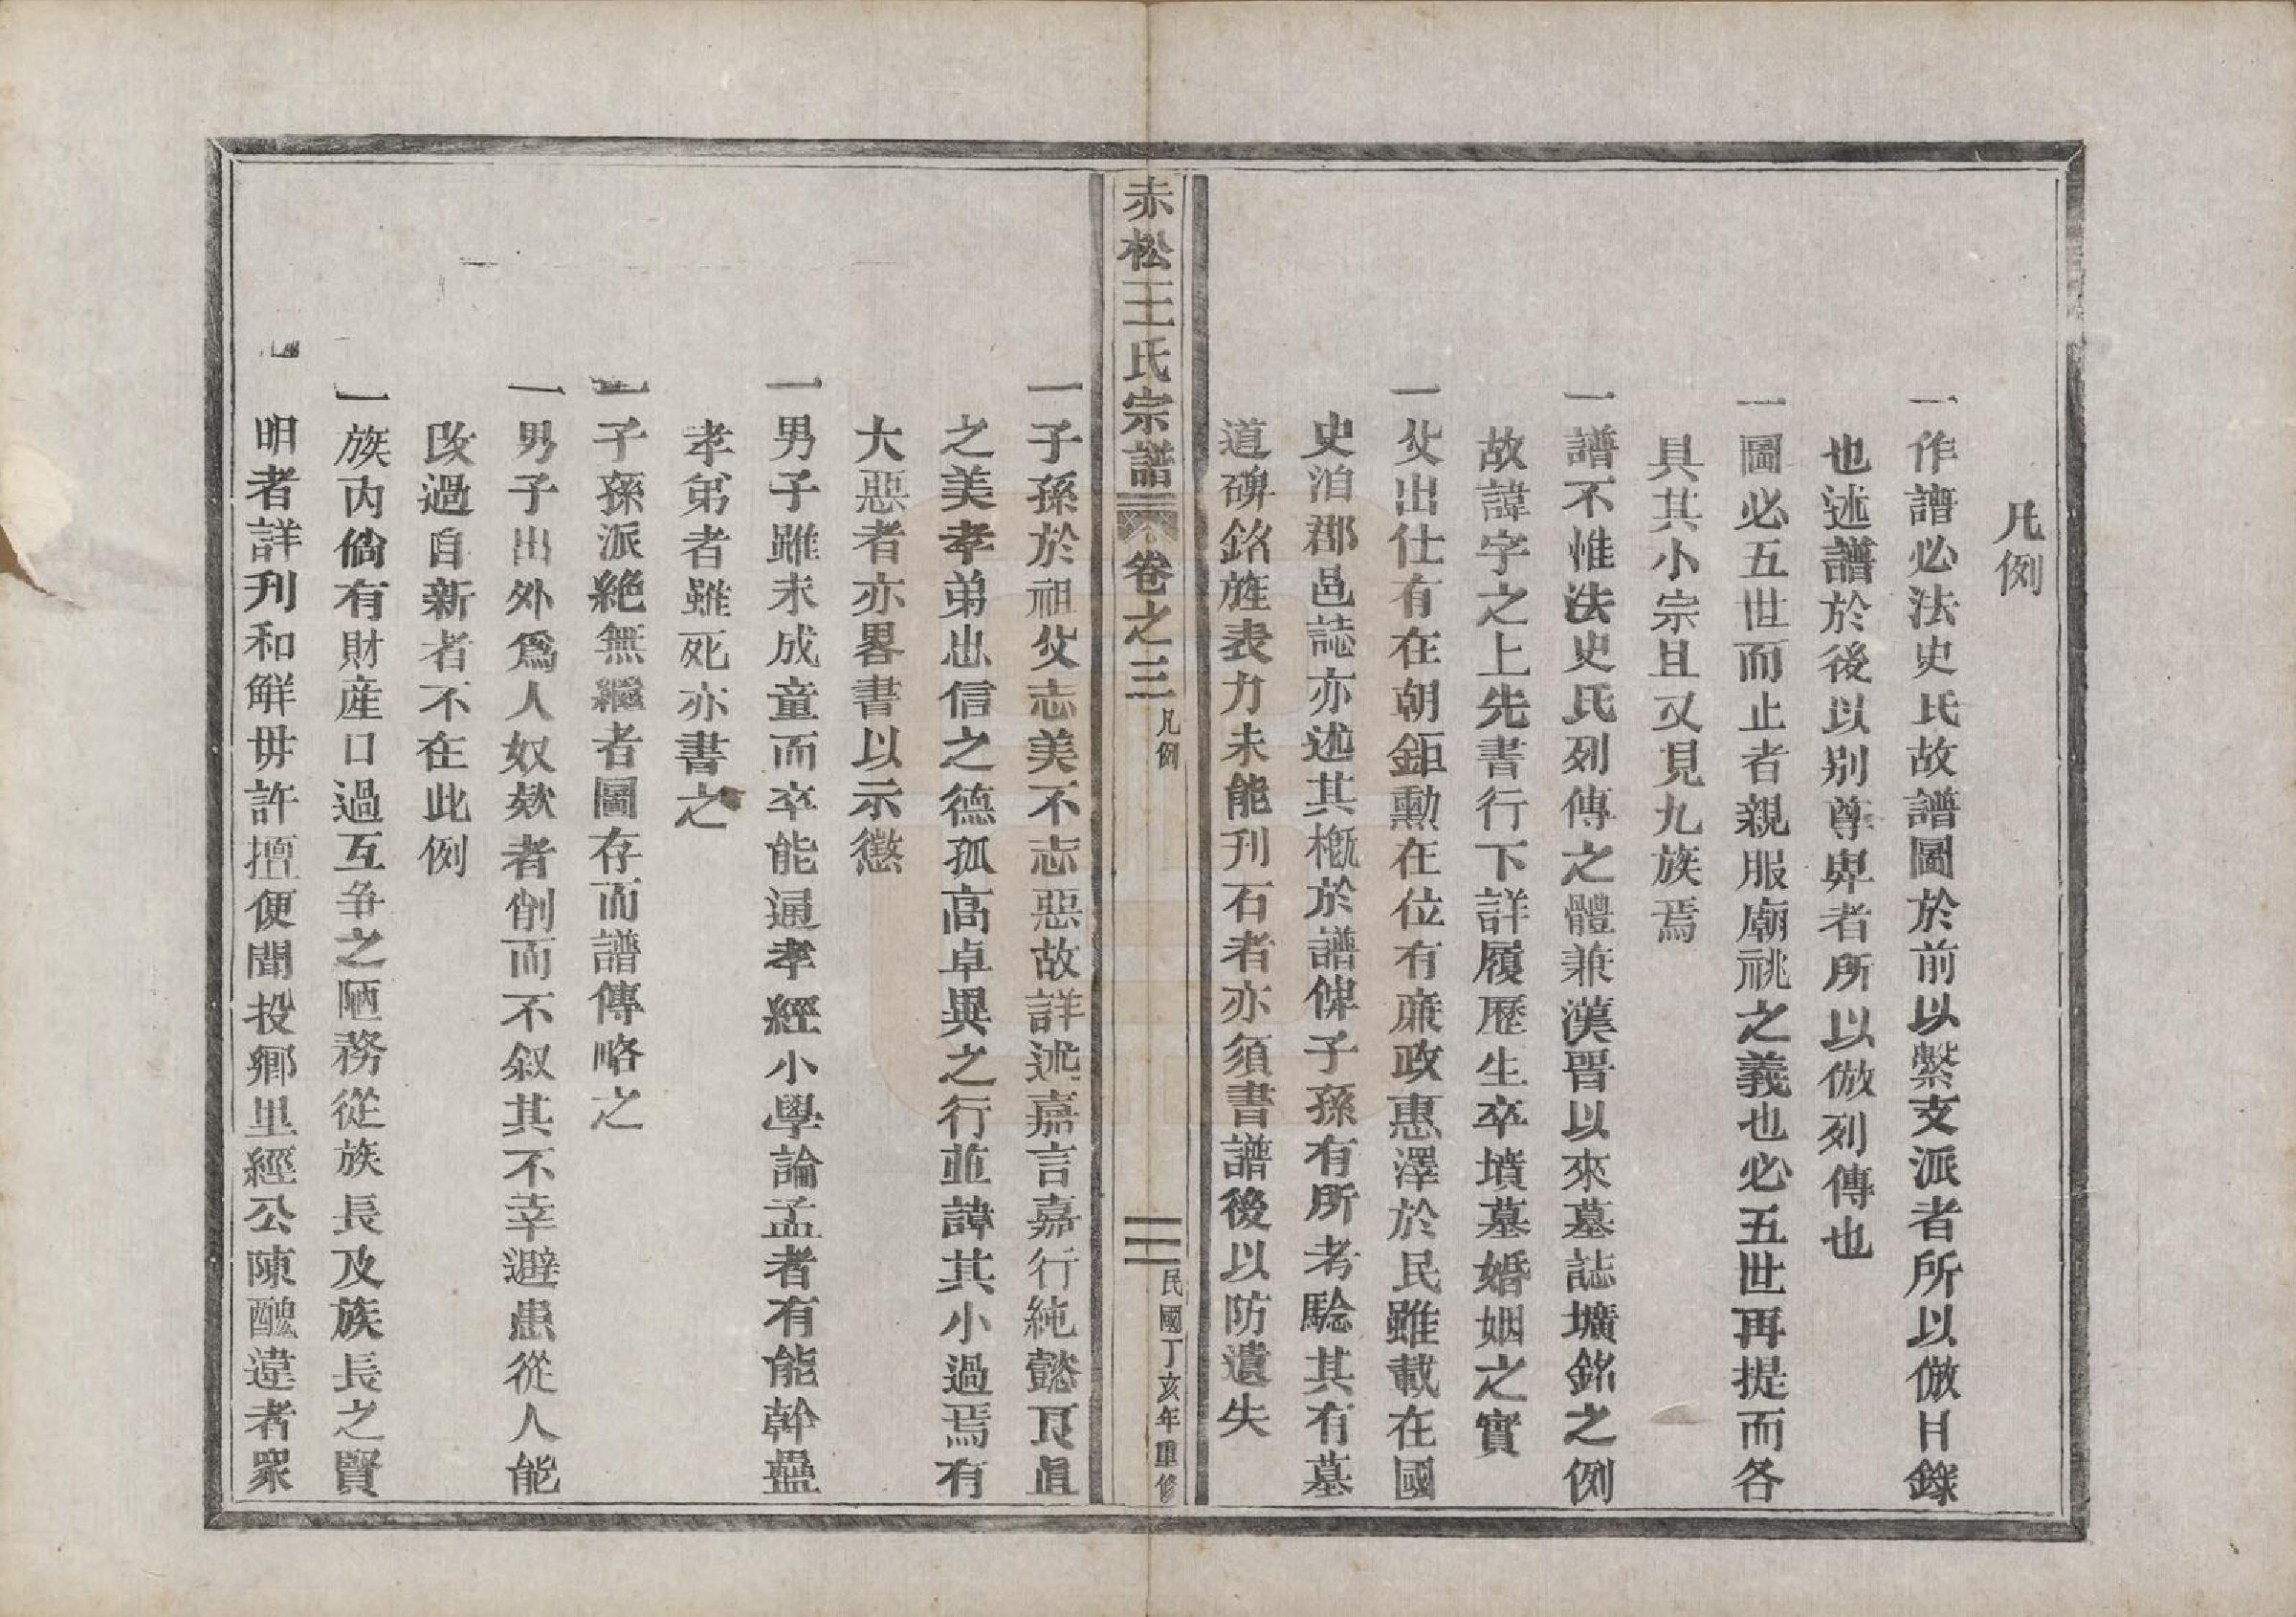 凡例
一作譜必法史氏故譜圖於前以繫支派者所以倣目錄
也述譜於後以别尊卑者所以倣列傳也
一圖必五世而止者親服廟祧之義也必五世再提而各
具其小宗且又見九族焉
一譜不惟法史氏列傳之體兼漢晋以來墓誌壙銘之例
故諱字之上先書行下詳履歷生卒墳墓婚姻之實
一父出仕有在朝鉅勳在位有廉政惠澤於民雖載在國
史洎郡邑誌亦述其槪於譜俾子孫有所考騐其有墓
道碑銘旌表力未能刊石者亦須書譜後以防遺失
赤松王氏宗譜 卷之三 凡例 三 民國丁亥年重修
一子孫於祖父志美不志惡故詳述嘉言嘉行純懿良眞
之美孝弟忠信之德孤高卓異之行並諱其小過焉有
大惡者亦畧書以示懲
一男子雖未成童而卒能通孝經小學論孟者有能幹蠱
孝弟者雖死亦書之
一子孫派絶無繼者圖存而譜傳略之
一男子出外爲人奴欵者削而不叙其不幸避患從人能
改過自新者不在此例
一族内倘有財產口過互争之陋務從族長及族長之賢
明者詳刋和觧毋許擅便聞投鄉里經公陳醜違者衆